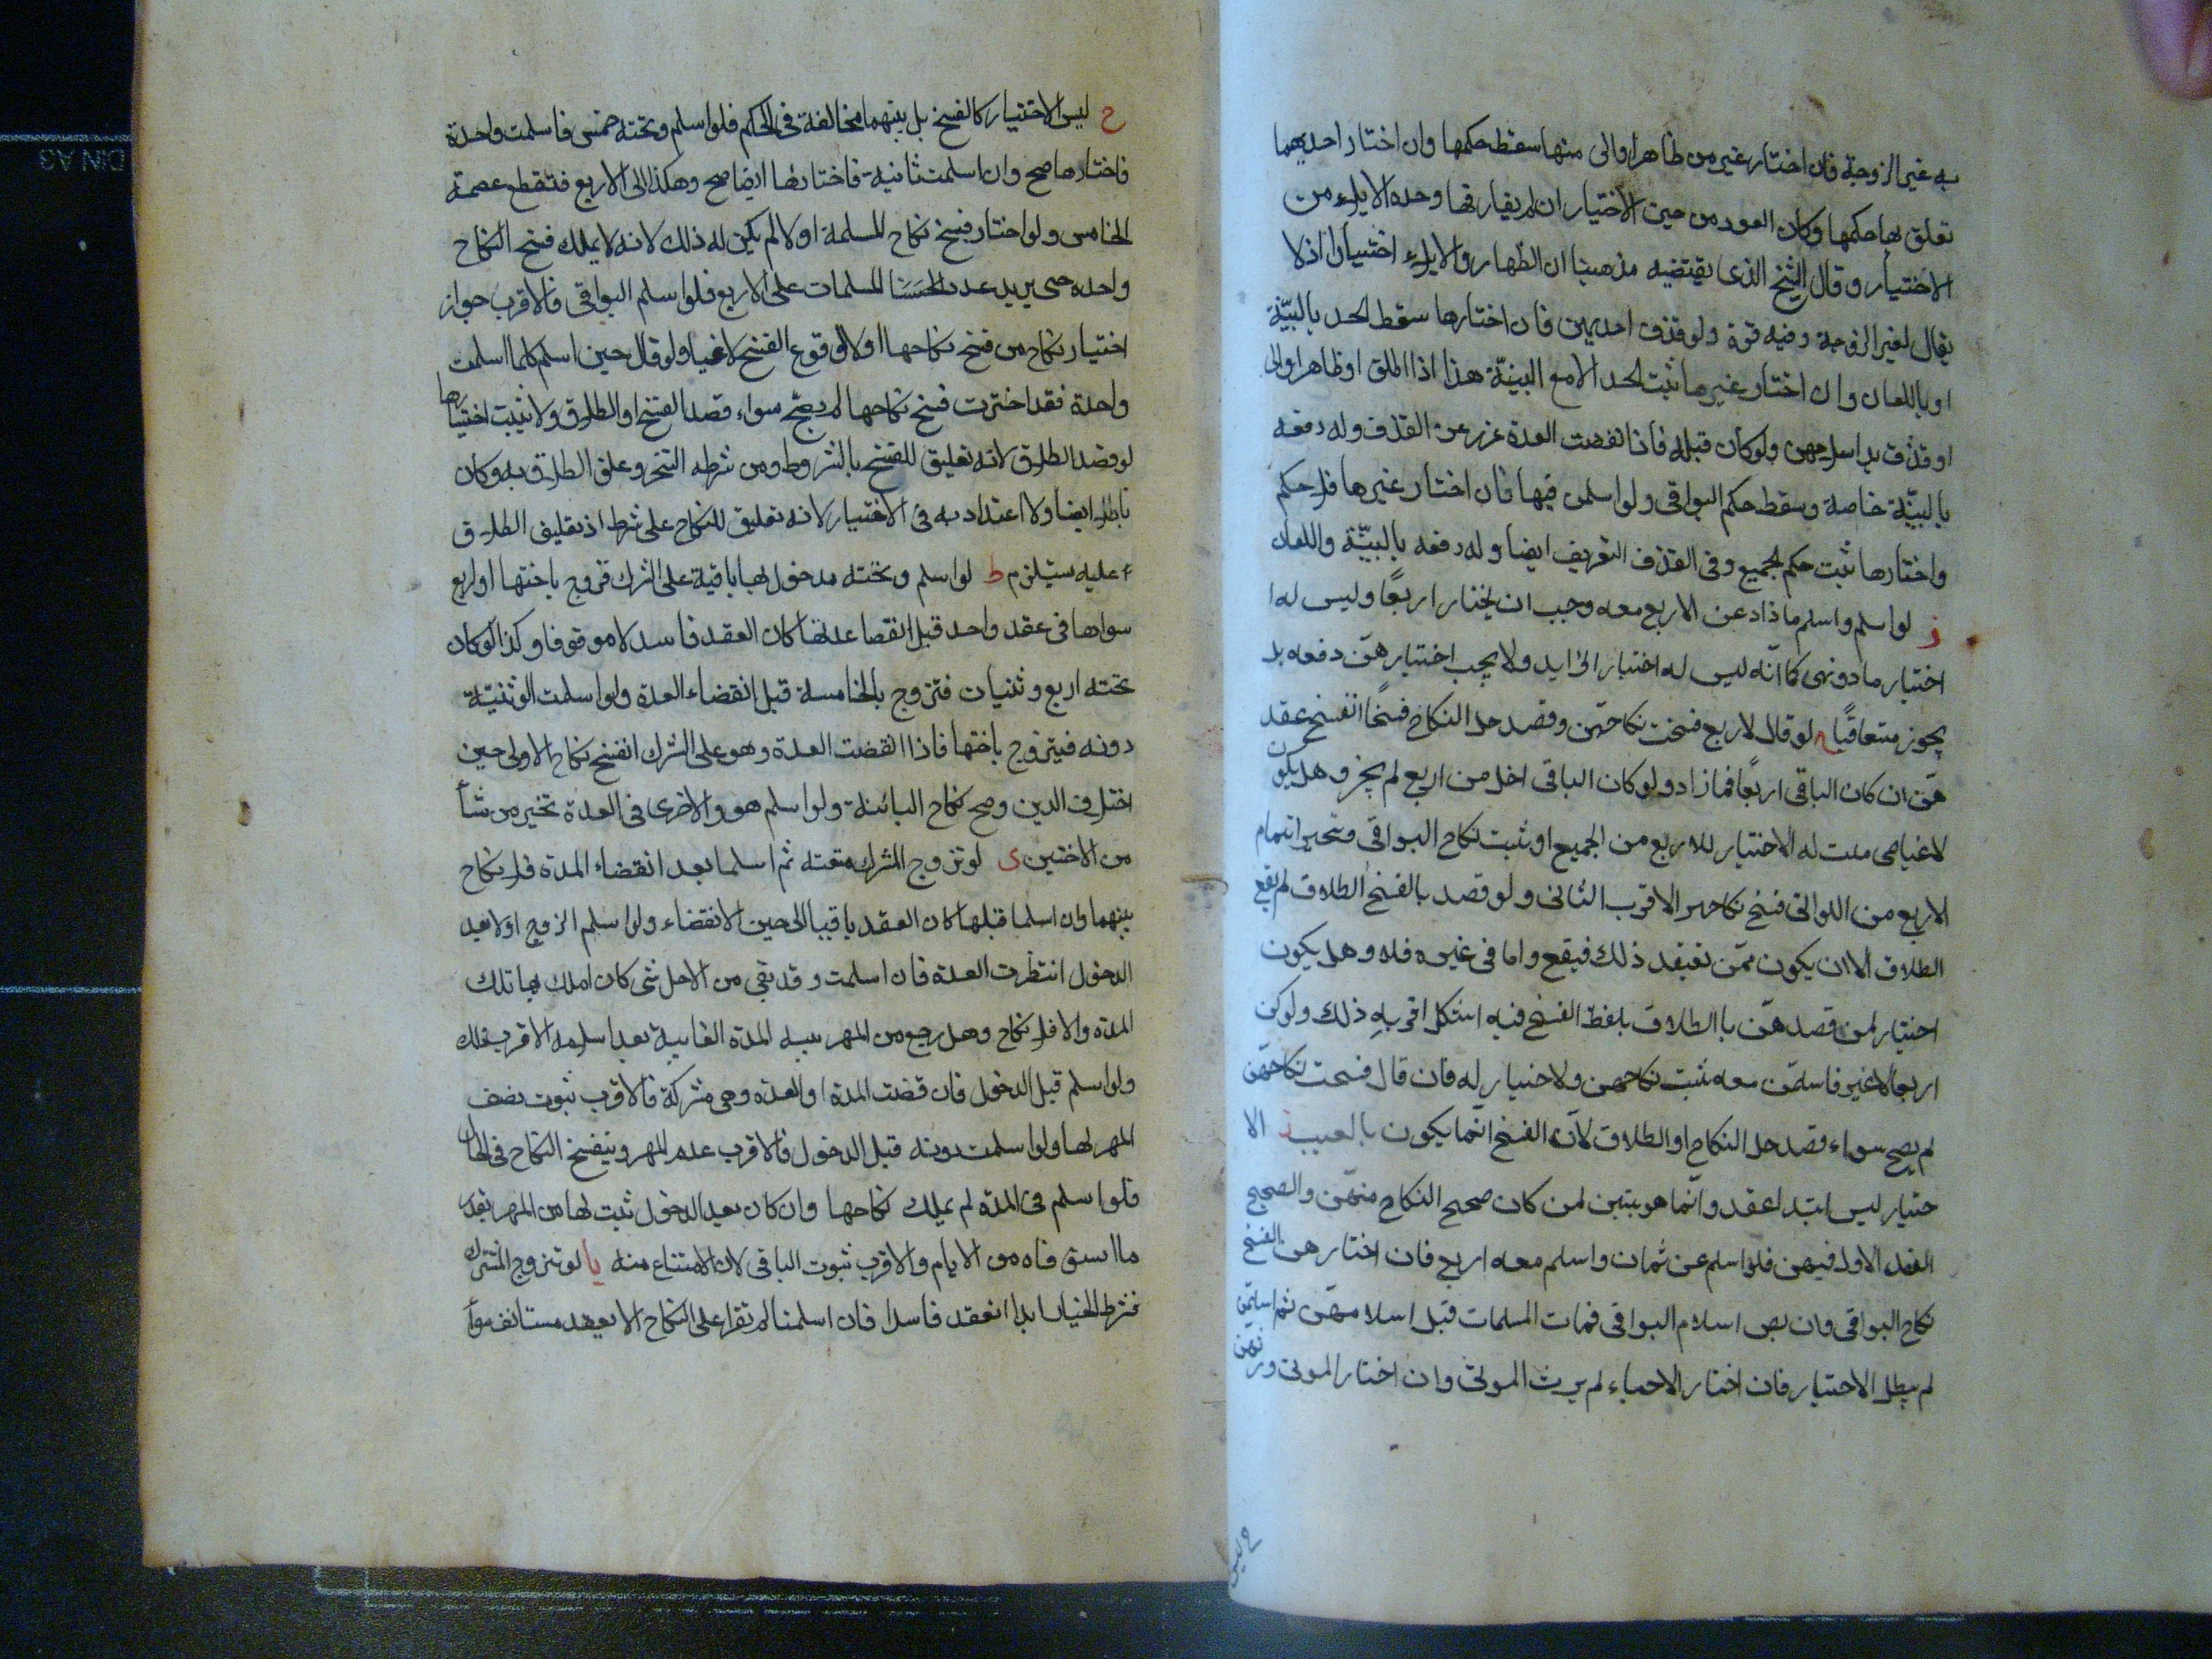 به غير الزوجة فان اختار غير من ظاهر او الى منها سقط حكمها وان اختار احديهما
تعلق بها حكمها وكان العود من حين الاختيار ان لم يفارقها وحده الايلاء من
الاختيار وقال الشيخ الذى يقتضيه مذهبنا ان الظهار والايلاء اختيارا اذ لا
يقال لغير الزوجة وفيه قوة ولو قذف احديهن فان اختارها سقط الحد بالبيّنة
او باللعان وان اختار غيرها ثبت الحد الا مع البينّة هذا اذا طلق او ظاهر او الى
او قذف بعد اسلامهن ولو كان قبله فاذا انقضت العدة عزر عن القذف وله دفعه
بالبيّنة خاصة وسقط حكم البواقى ولو اسلمن فيها فان اختار غيرها فلا حكم
واختارها ثبت حكم الجميع وفى القذف التعريف ايضا وله دفعه بالبيّنة واللعان
لو اسلم واسلم ما زاد عن الاربع معه وجب ان يختار اربعًا وليس له ا
اختيار ما دونهى كما انّه ليس له اختيار الزايد ولا يجب اختيارهنّ دفعه بل
يجوز متعاقبًا لو قال لاربع فسخت نكاحهّن وقصد حل النكاح فسخًا انفسخ عقد
هنّ ان كان الباقى اربعًا فما زاد ولو كان الباقى اقل من اربع لم يجز وهل يكون
لاغيا حى ملت له الاختيار للاربع من الجميع او ثبت نكاح البواقى وتخير اتمام
الاربع من اللواتى فسخ نكاحهن الاقرب الثانى ولو قصد بالفسخ الطلاق لم يقع
الطلاق الا ان يكون ممّن تعيقد ذلك فيقع واما فى غيره فلا وهل يكون
اختيار لمن قصدهنّ باالطلاق بلفظ الفسخ فيه اشكل اقربه ذلك ولو كن
اربعا لاغير فاسلمّن معه ثبت نكاحهن ولا خيار له فان قال فسخت نكاحهّن
لم يصح سواء قصد حل النكاح او الطلاق لانّ الفسخ انّما يكون بالعيب الا
ختيار ليس ابتداء عقد وانّما هو يتبين لمن كان صحيح النكاح منهّن والصحيح
العقد الاول فيهن فلو اسلم عن ثمان واسلم معه اربع فان اختارهن الفسخ
نكاح البواقى وان بص اسلام البواقى فمات المسلمات قبل اسلامهّن ثم اسلمّن
لم يبطل الاختيار فان اختار الاحياء لم يرث الموتى وان اختار الموتى ورثهن
ح ليس الاختيار كالفسخ بل بينهما مخالفة فى الحكم فلو اسلم وتحته خمس فاسلمت واحدة
فاختارها صح وان اسلمت ثانية فاختارها ايضا صح وهكذا الى الاربع فتقطع عصمة
الخامس ولو اختار فسخ نكاح المسلمة اولا لم يكن له ذلك لانه لا يملك فسخ النكاح
واحده حى يريد عدد المسلمات على الاربع فلو اسلم البواقى فالاقرب جواز
اختيار نكاح من فسخ نكاحها اولا لوقوع الفسخ لاغيا ولو قال حين اسلم كلما اسلمت
واحدة فقد اخترت فسخ نكاحها لم يصحّ سواء قصد الفسخ او الطلاق ولا يثبت اختيارها
لو قصد الطلاق لانه تعليق للفسخ بالشروط ومن شرطه التنجز وعلق الطلاق به وكان
باطلا ايضا ولا اعتداد به فى الاختيار لانه تعليق للنكاح على شرط اذ تعليق الطلاق
عليه يستلزم ط لو اسلم وتحته مدخول بها باقية على الشرك فتزوج باختها او اربع
سواها فى عقد واحد قبل انقضا عدتها كان العقد فاسد لا موقوفا وكذا لو كان
تحته اربع وثنيات فتزوج بالخامسة قبل انقضاء العدة ولو اسلمت الوثنيّة
دونه فيتزوج باختها فاذا انقضت العدة وهو على الشرك انفسخ نكاح الاولى حين
اختلاف الدين وصح نكاح الثانية ولو اسلم هو والاخرى فى العدة تخير من شأ
من الاختين ى لو تزوج المشرك متعته ثم اسلما بعد انقضاء المدة فلا نكاح
بينهما وان اسلما قبلها كان العقد باقيا الى حين الانقضاء ولو اسلم الزوج اولا بعد
الدخول انتظرت العدة فان اسلمت وقد بقى من الاجل شى كان املك بها تلك
المدة والا فلا نكاح وهل يرجع من المهر بنسبه المدة الفايتة بعد اسلامه الاقرب ذلك
ولو اسلم قبل الدخول فان قضت المدة او العدة وهى مشركة فالاقرب ثبوت نصف
المهر لها ولو اسلمت دونه قبل الدخول فالاقرب عدم المهر وينفسخ النكاح فى الحال
فلو اسلم فى المدة لم يملك نكاحها وان كان بعد الدخول ثبت لها من المهر بقدر
ما سبق من الايام والاقرب ثبوت الباقى لان الامتناع منه يا لو تزوج المشرك
بشرط الخيار ابدا انعقد فاسدا فان اسلمنا لم نقرا على النكاح الا بعقد مستانف سوأ